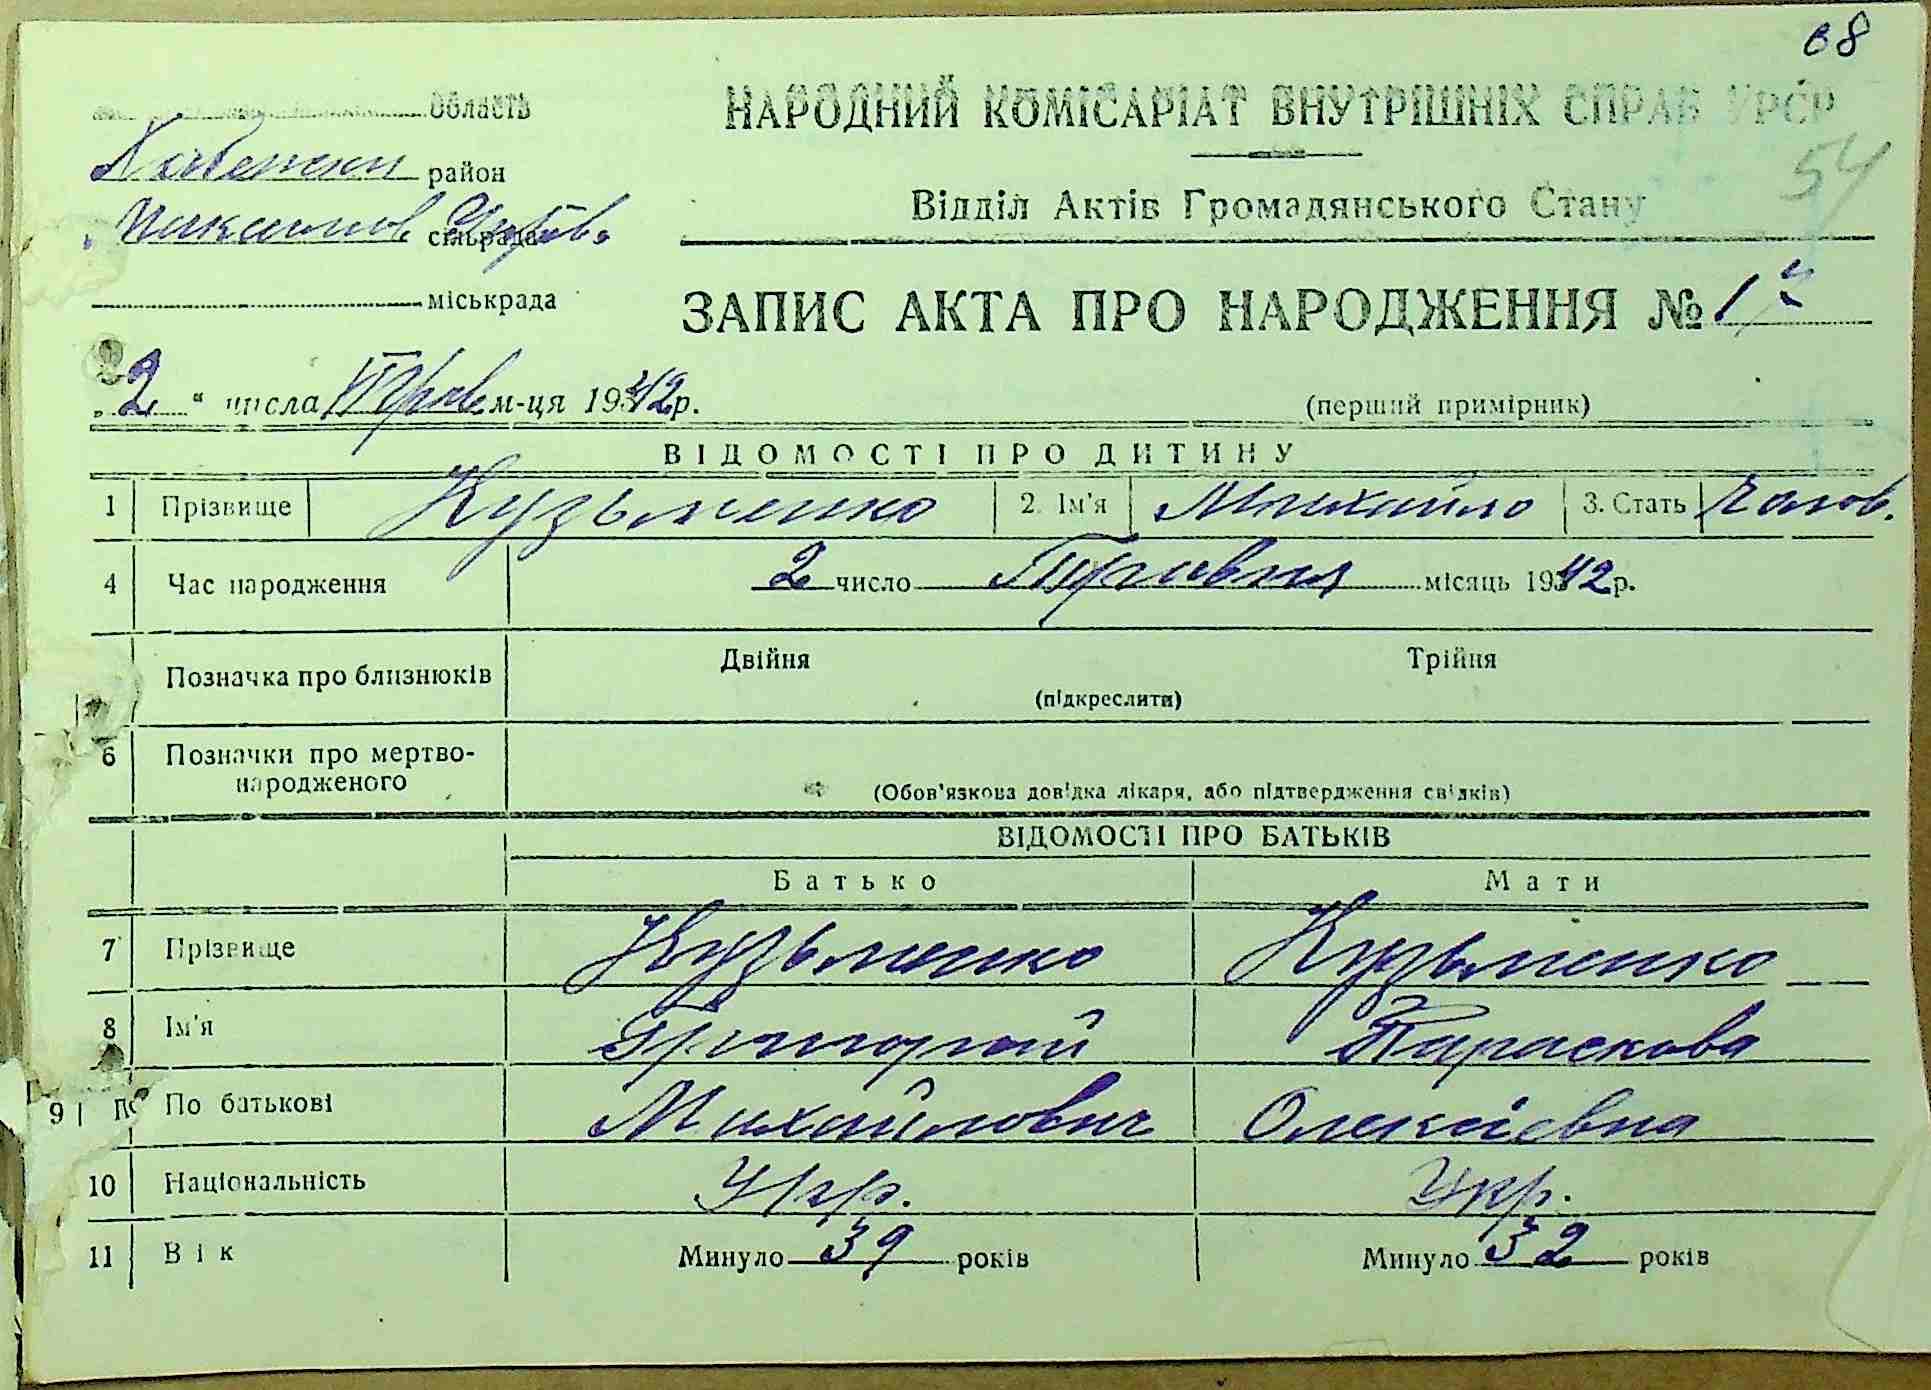 68
область
НАРОДНИЙ КОМІСАРІАТ ВНУТРІШНІХ СПРАВ УРСР
район
54
Відділ Актів Громадянського Стану
сільрада
міськрада
ЗАПИС АКТА ПРО НАРОДЖЕННЯ №
„2" числа Трав. м-ця 1942р.
(перший примірник)
ВІДОМОСТІ ПРО ДИТИНУ
1 Прізвище Кузьменко 2. Ім'я Михайло 3. Стать чолов.
4 Час народження 2 число Травня місяць 1942р.
Позначка про близнюків Двійня Трійня
(підкреслити)
6 Позначки про мертво-
народженого
(Обов'язкова довідка лікаря, або підтвердження свідків)
ВІДОМОСТІ ПРО БАТЬКІВ
Батько Мати
7 Прізвище Кузьменко Кузьменко
8 Ім'я Григорій Параскова
9 По По батькові Михайлович Олексієвна
10 Національність Укр. Укр.
11 Вік Минуло 39 років Минуло 32 років